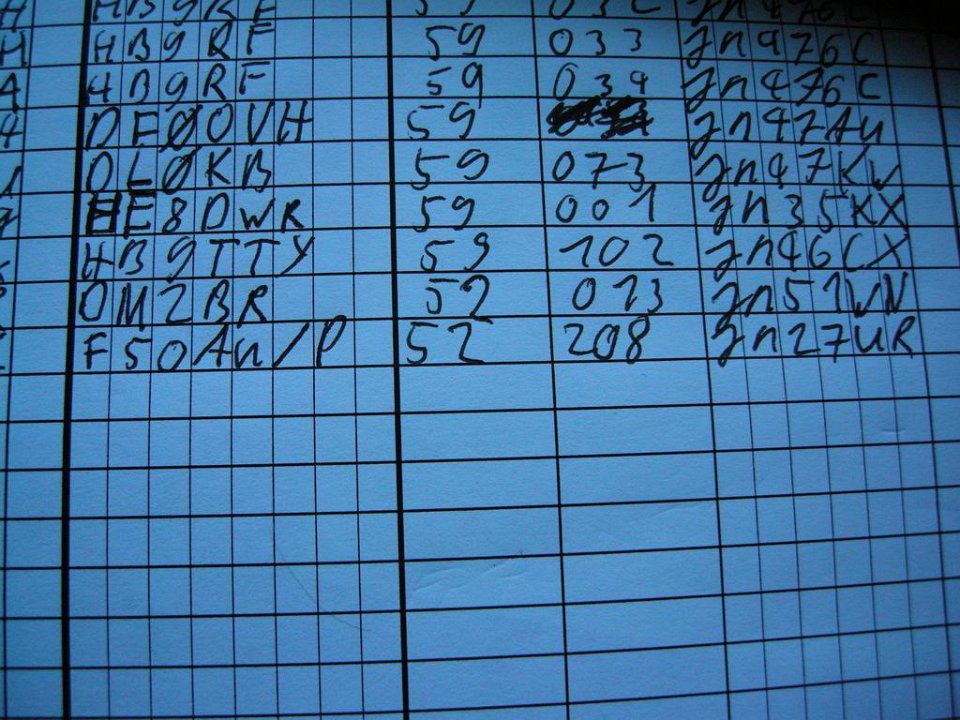 HB9RF 59 032 JN476C
HB9RF 59 033 JN476C
HB9RF 59 034 JN476C
DF0OVH 59 JN47AU
DL0KB 59 073 JN47KW
HE8DWR 59 001 JN35KX
HB9TTY 59 102 JN46CX
OM2BR 52 013 JN51WN
F5OAU/P 52 208 JN27UR